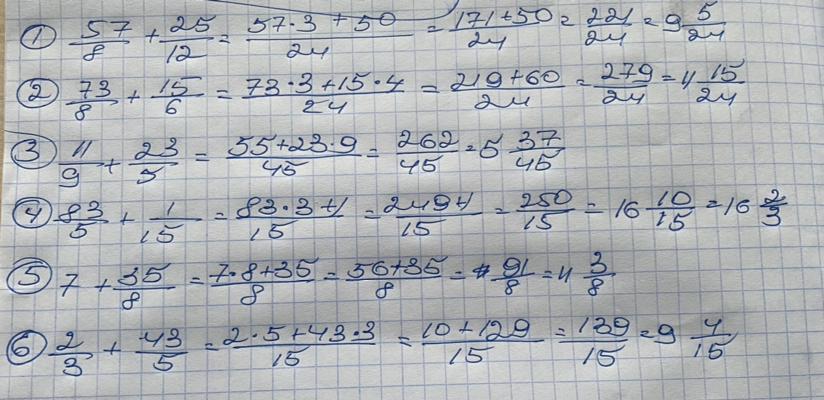 ① 57/8 + 25/12 = 57·3+50/24 = 171+50/24 = 221/24 = 9 5/24
② 73/8 + 15/6 = 73·3+15·4/24 = 219+60/24 = 279/24 = 11 15/24
③ 11/9 + 23/5 = 55+23·9/45 = 262/45 = 5 37/45
④ 83/5 + 1/15 = 83·3+1/15 = 249+1/15 = 250/15 = 16 10/15 = 16 2/3
⑤ 7 + 35/8 = 7·8+35/8 = 56+35/8 = 91/8 = 11 3/8
⑥ 2/3 + 43/5 = 2·5+43·3/15 = 10+129/15 = 139/15 = 9 4/15